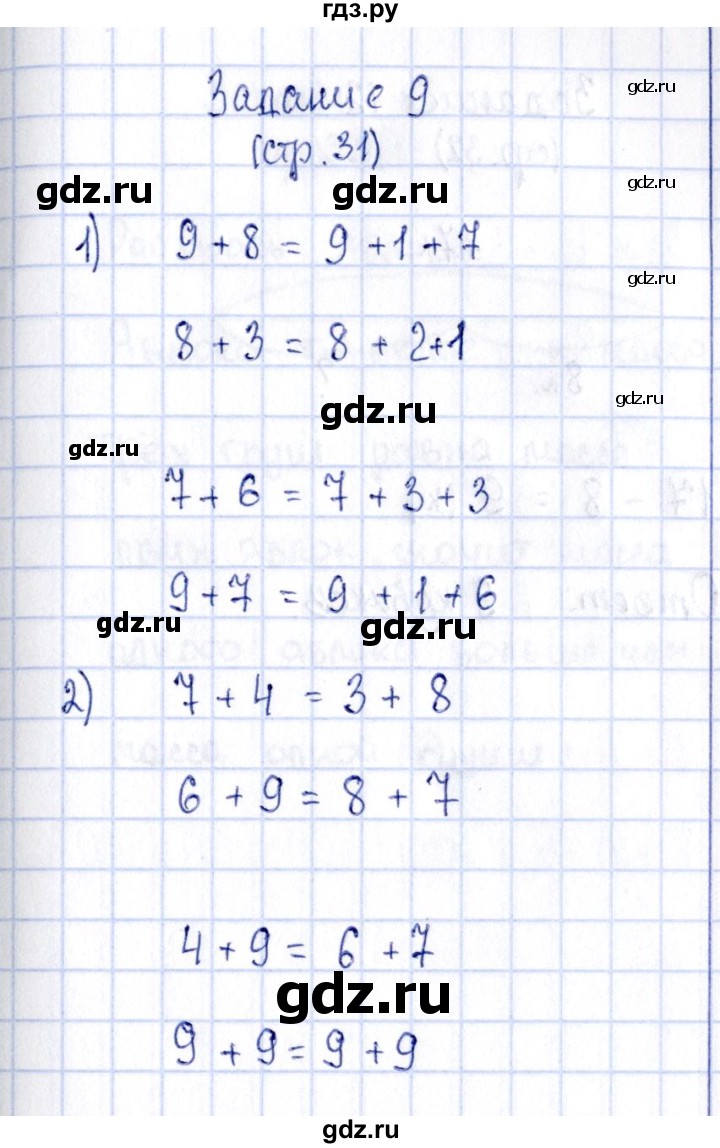 гдз.ру
Задание 9
gdz.ru
(стр.31)
gdz.ru
gdz.ru
1) 9 + 8 = 9 + 1 + 7
gdz.ru
8 + 3 = 8 + 2+1
gdz.ru
gdz.ru
gdz.ru
7 + 6 = 7 + 3 + 3
9 + 7 = 9 + 1 + 6
gdz.ru
gdz.ru
2) 7 + 4 = 3 + 8
6 + 9 = 8 + 7
4 + 9 = 6 + 7
gdz.ru
9 + 9 = 9 + 9
gdz.ru